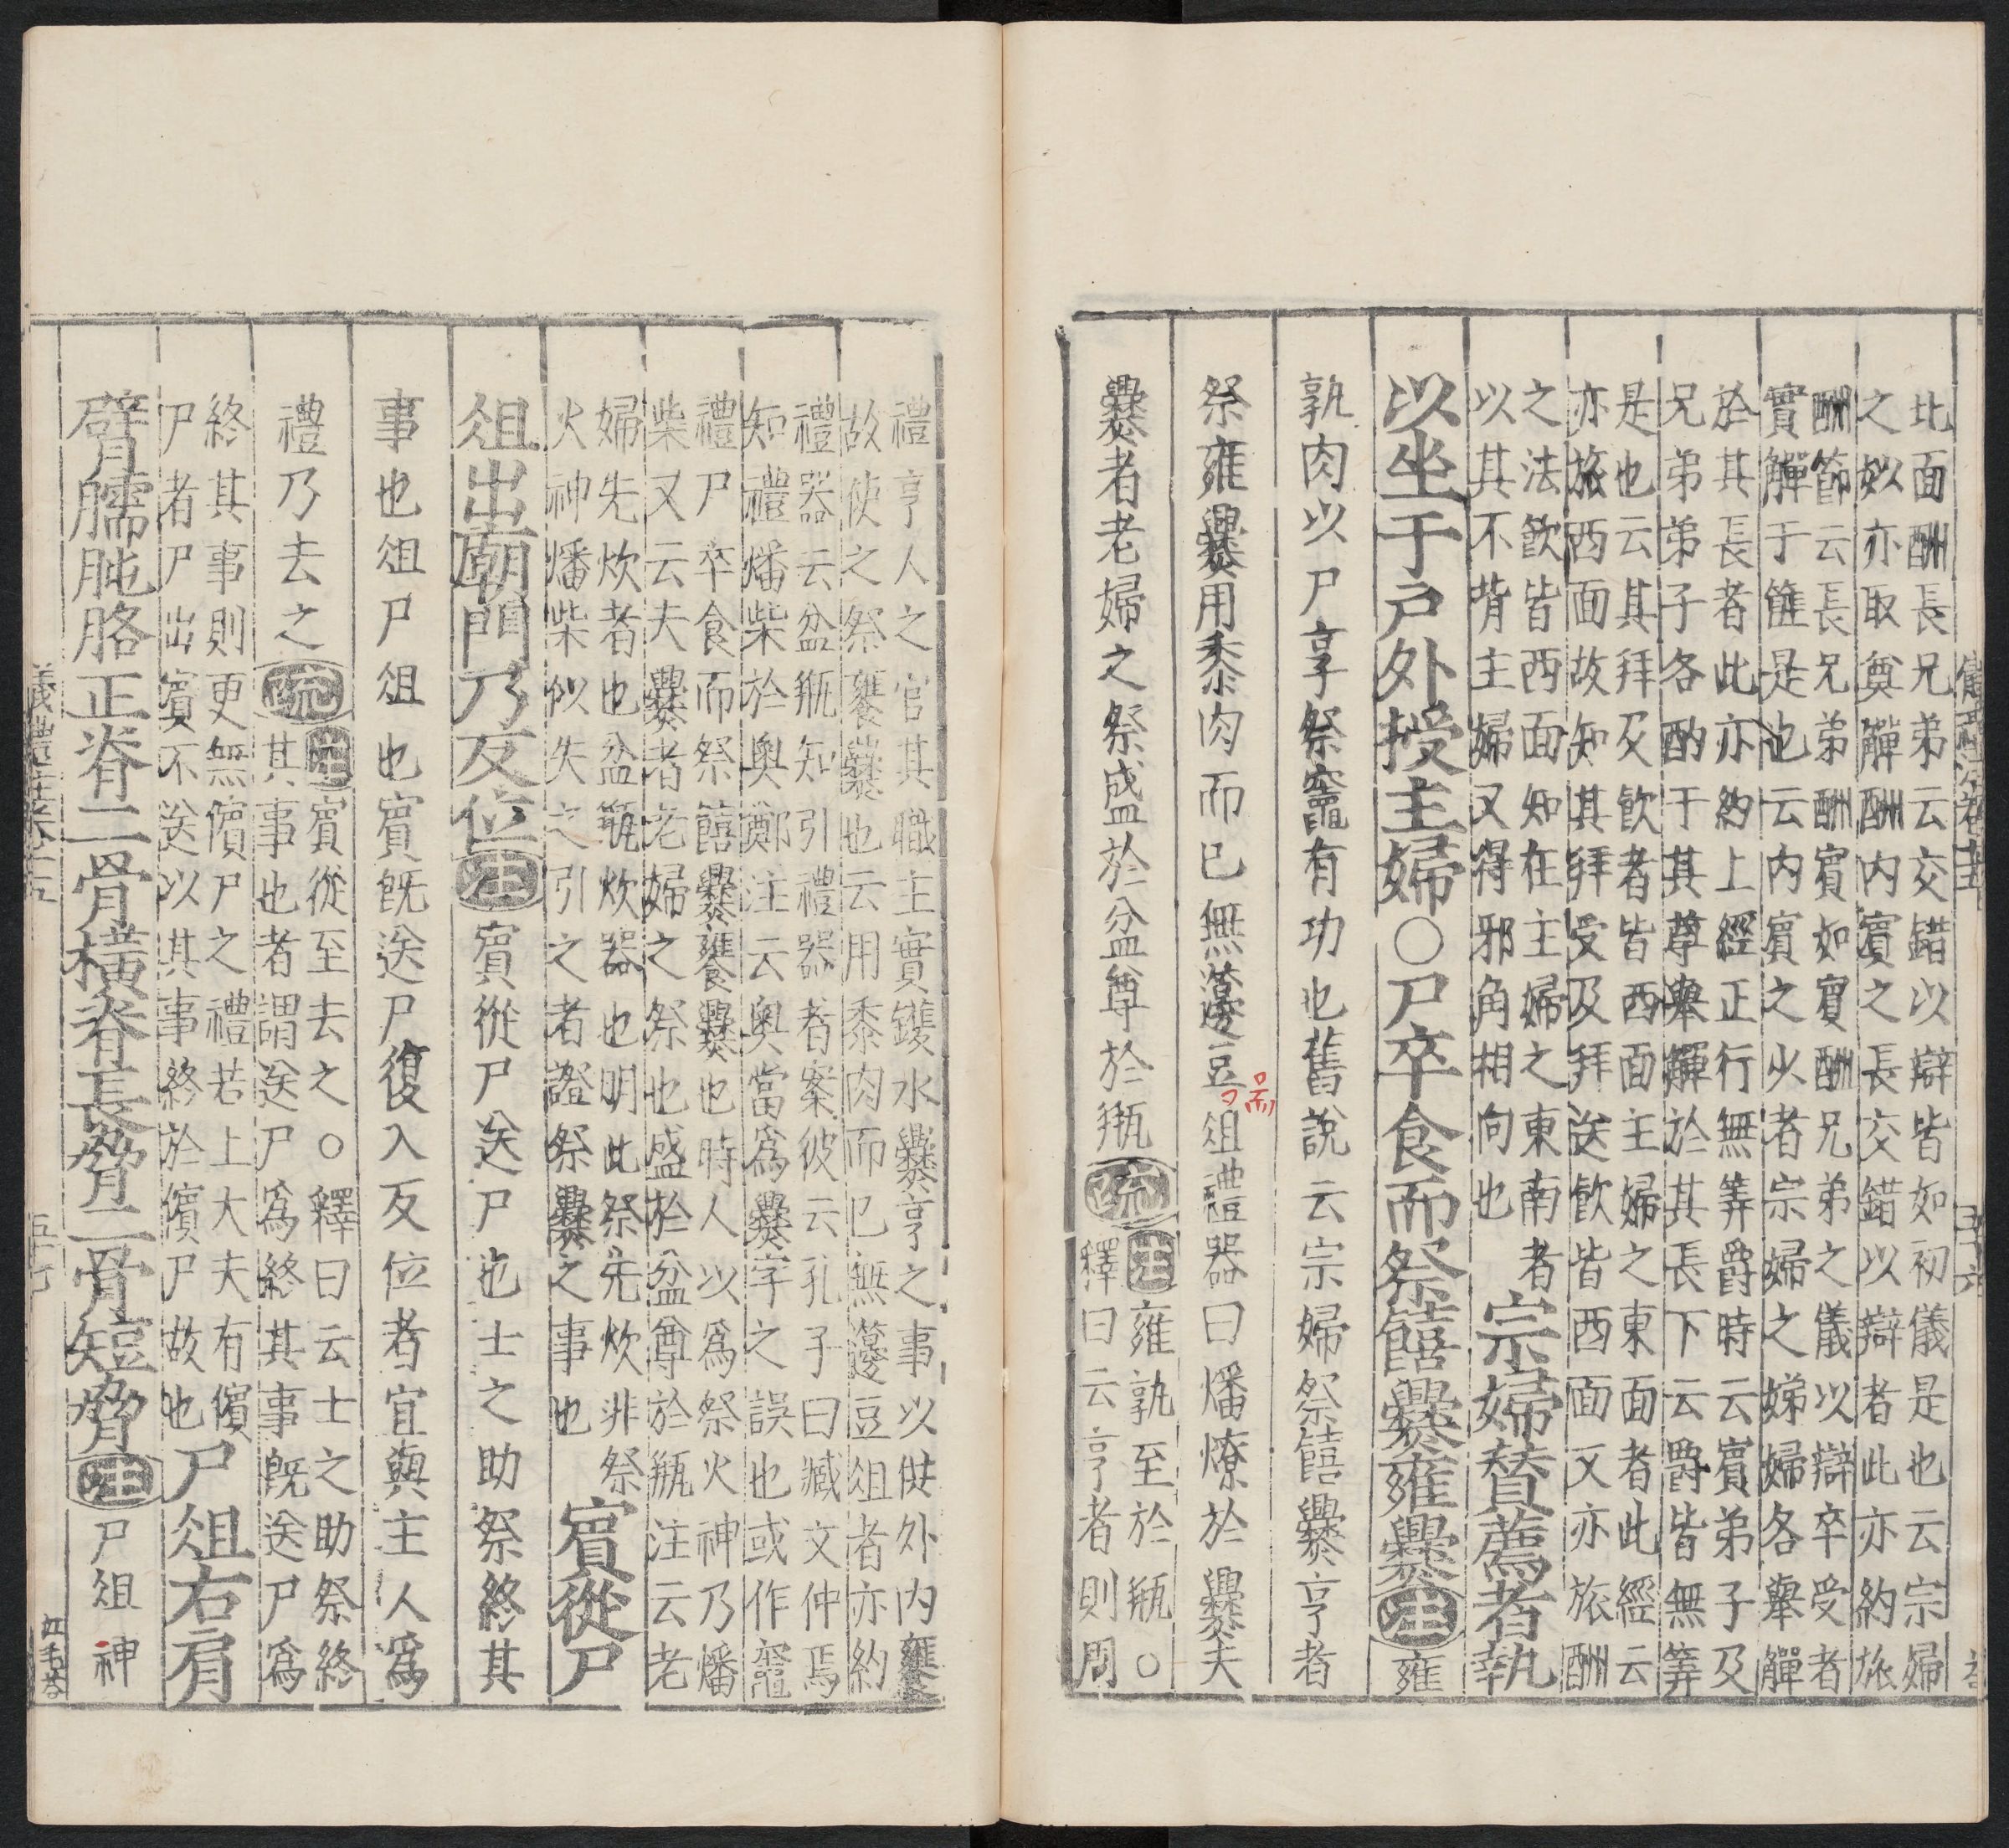 北面酬長兄弟云交錯以辯皆如初儀是也云宗婦
之姒亦取奠觶酬内賓之長交錯以辯者此亦約旅
酬節云長兄弟酬賓如賓酬兄弟之儀以辯卒受者
實觶于篚是也云内賓之少者宗婦之娣婦各舉觶
於其長者此亦約上經正行無筭爵時云賓弟子及
兄弟弟子各酌于其尊舉觶於其長下云爵皆無筭
是也云其拜及飲者皆西面主婦之東面者此經云
亦旅西面故知其拜受及拜送飲皆西面又亦旅酬
之法飲皆西面知在主婦之東南者
以其不背主婦又得邪角相向也
宗婦贊薦者執
以坐于戶外授主婦○尸卒食而祭饎爨雍爨注雍
孰肉以尸享祭竈有功也舊說云宗婦祭饎爨亨者
祭雍爨用黍肉而已無籩豆俎禮器曰燔燎於爨夫
爨者老婦之祭盛於盆尊於瓶疏注雍孰至於瓶○
釋曰云亨者則周
禮亨人之官其職主實鑊水爨亨之事以供外内饔
故使之祭饔爨也云用黍肉而已無籩豆俎者亦約
禮器云盆瓶知引禮器者案彼云孔子曰臧文仲焉
知禮燔柴於奧鄭注云奧當爲爨字之誤也或作竈
禮尸卒食而祭饎爨饔爨也時人以爲祭火神乃燔
柴又云夫爨者老婦之祭也盛於盆尊於瓶注云老
婦先炊者也盆瓶炊器也明此祭先炊非祭
火神燔柴似失之引之者證祭爨之事也
賓從尸
俎出廟門乃反位注賓從尸送尸也士之助祭終其
事也俎尸俎也賓旣送尸復入反位者宜與主人爲
禮乃去之疏注賓從至去之○釋曰云士之助祭終
其事也者謂送尸爲終其事旣送尸爲
終其事則更無儐尸之禮若上大夫有儐
尸者尸出賓不送以其事終於儐尸故也
尸俎右肩
臂臑肫胳正脊二骨橫脊長脅二骨短脅注尸俎神